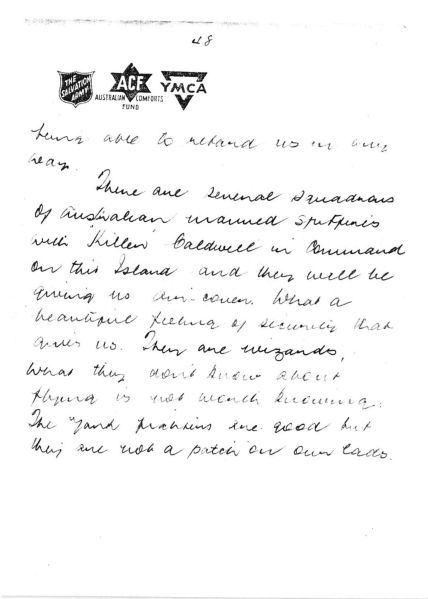 48
THE SALVATION ARMY
ACF
AUSTRALIAN COMFORTS FUND
YMCA
being able to retard us in any
way.
There are several squadrons
of Australian manned Spitfires
with 'Killer' Caldwell in Command
on this Island and they will be
giving us air cover. What a
beautiful feeling of security that
gives us. They are wizards,
what they don't know about
flying is not worth knowing.
The "Yank fighters are good but
they are not a patch on our lads.